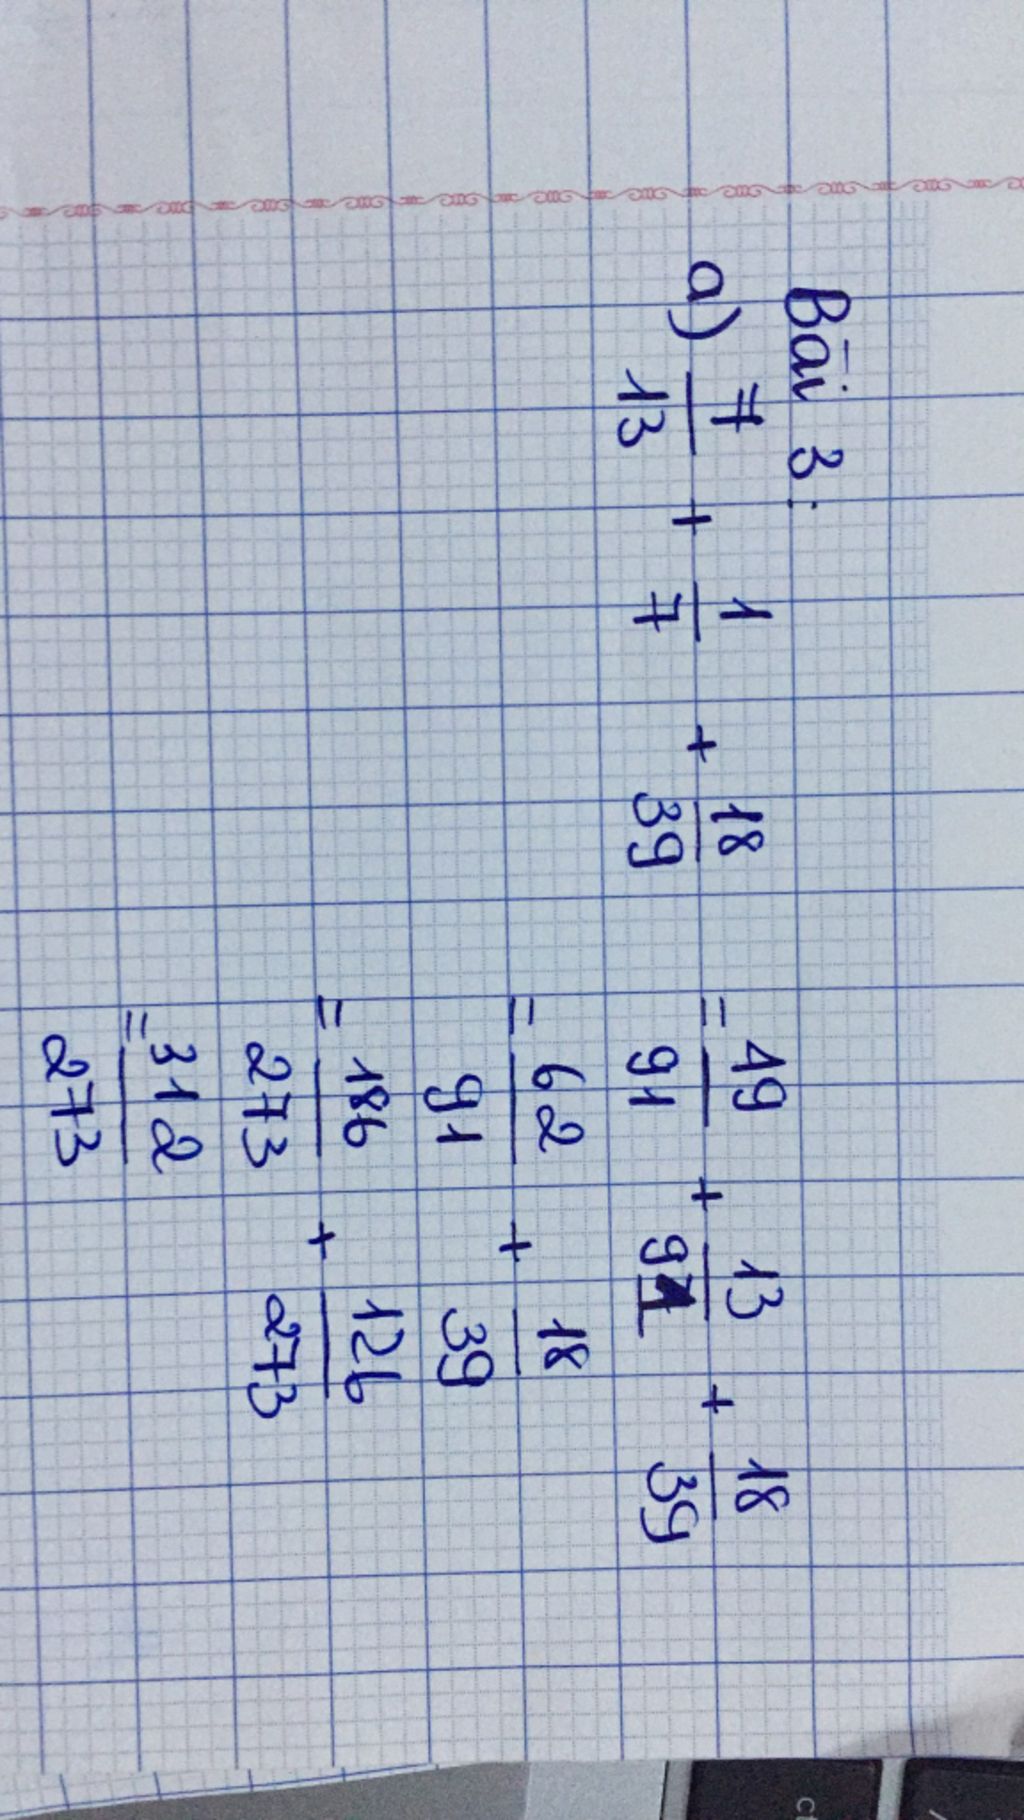 Bài 3:
a) 7/13 + 1/7 + 18/39 = 49/91 + 13/91 + 18/39
= 62/91 + 18/39
= 186/273 + 126/273
= 312/273